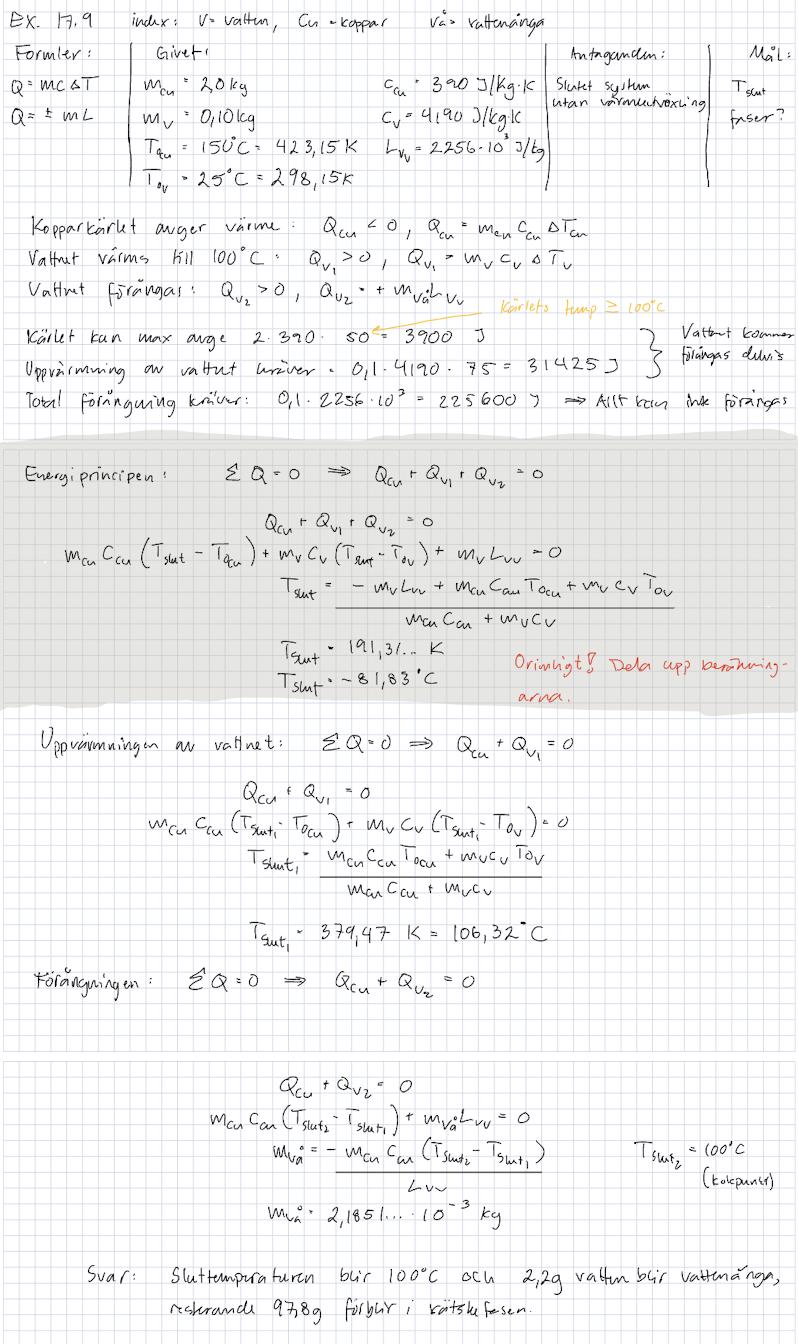 Ex. 17.9 index: V = vatten, Cu = koppar vå = vattenånga
Formler: Givet: Antaganden: Mål:
Q = mcΔT m_cu = 2,0 kg c_cu = 390 J/kg·K Slutet system T_slut
Q = ± mL m_v = 0,10 kg c_v = 4190 J/kg·K utan värmeutväxling faser?
T_0cu = 150°C = 423,15 K L_vv = 2256·10³ J/kg
T_0v = 25°C = 298,15 K
Kopparkärlet avger värme: Q_cu < 0, Q_cu = m_cu c_cu ΔT_cu
Vattnet värms till 100°C: Q_v1 > 0, Q_v1 = m_v c_v ΔT_v
Vattnet förångas: Q_v2 > 0, Q_v2 = + m_vå L_vv
Kärlets temp ≥ 100°C
Kärlet kan max avge 2·390·50 = 3900 J } Vattnet kommer
Uppvärmning av vattnet kräver = 0,1·4190·75 = 31425 J förångas delvis
Total förångning kräver: 0,1·2256·10³ = 225600 J ⇒ Allt kan inte förångas
Energiprincipen: ΣQ = 0 ⇒ Q_cu + Q_v1 + Q_v2 = 0
Q_cu + Q_v1 + Q_v2 = 0
m_cu c_cu (T_slut - T_0cu) + m_v c_v (T_slut - T_0v) + m_v L_vv = 0
T_slut = (- m_v L_vv + m_cu c_cu T_0cu + m_v c_v T_0v) / (m_cu c_cu + m_v c_v)
T_slut = 191,31... K
T_slut = -81,83°C
Orimligt! Dela upp beräkning-
arna.
Uppvärmningen av vattnet: ΣQ = 0 ⇒ Q_cu + Q_v1 = 0
Q_cu + Q_v1 = 0
m_cu c_cu (T_slut1 - T_0cu) + m_v c_v (T_slut1 - T_0v) = 0
T_slut1 = (m_cu c_cu T_0cu + m_v c_v T_0v) / (m_cu c_cu + m_v c_v)
T_slut1 = 379,47 K = 106,32°C
Förångningen: ΣQ = 0 ⇒ Q_cu + Q_v2 = 0
Q_cu + Q_v2 = 0
m_cu c_cu (T_slut2 - T_slut1) + m_vå L_vv = 0
m_vå = - m_cu c_cu (T_slut2 - T_slut1) / L_vv T_slut2 = 100°C
(kokpunkt)
m_vå = 2,1851... · 10⁻³ kg
Svar: Sluttemperaturen blir 100°C och 2,2g vatten blir vattenånga,
resterande 97,8g förblir i vätskefasen.